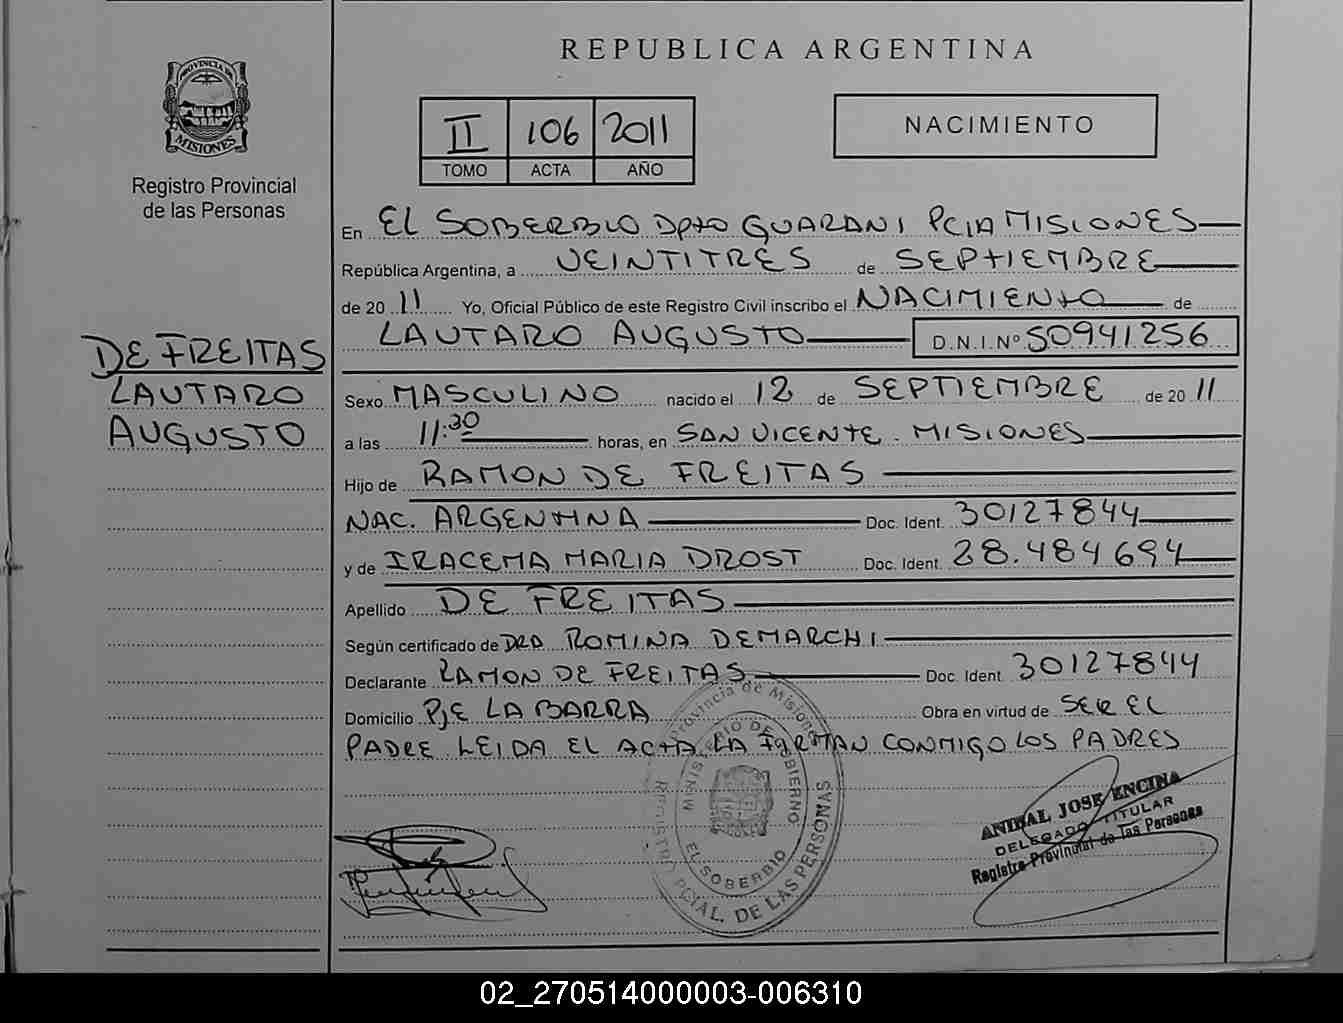 REPUBLICA ARGENTINA
PROVINCIA DE
MISIONES
Registro Provincial
de las Personas
II 106 2011
TOMO ACTA AÑO
NACIMIENTO
En EL SOBERBIO Dpto GUARANI PCIA MISIONES
República Argentina, a VEINTITRES de SEPTIEMBRE
de 20 11 Yo, Oficial Público de este Registro Civil inscribo el NACIMIENTO de
LAUTARO AUGUSTO D.N.I.Nº 50941256
DE FREITAS
LAUTARO
AUGUSTO
Sexo MASCULINO nacido el 12 de SEPTIEMBRE de 20 11
a las 11:30 horas, en SAN VICENTE. MISIONES
Hijo de RAMON DE FREITAS
NAC. ARGENTINA Doc. Ident. 30127844
y de IRACEMA MARIA DROST Doc. Ident. 28.484694
Apellido DE FREITAS
Según certificado de DRA ROMINA DEMARCHI
Declarante RAMON DE FREITAS Doc. Ident. 30127844
Domicilio PJE LA BARRA Obra en virtud de SER EL
PADRE LEIDA EL ACTA LA FIRMAN CONMIGO LOS PADRES
Provincia de Misiones
MINISTERIO DE GOBIERNO
EL SOBERBIO
REGISTRO PCIAL. DE LAS PERSONAS
ANIBAL JOSE ENCINA
DELEGADO TITULAR
Registro Provincial de las Personas
02_270514000003-006310